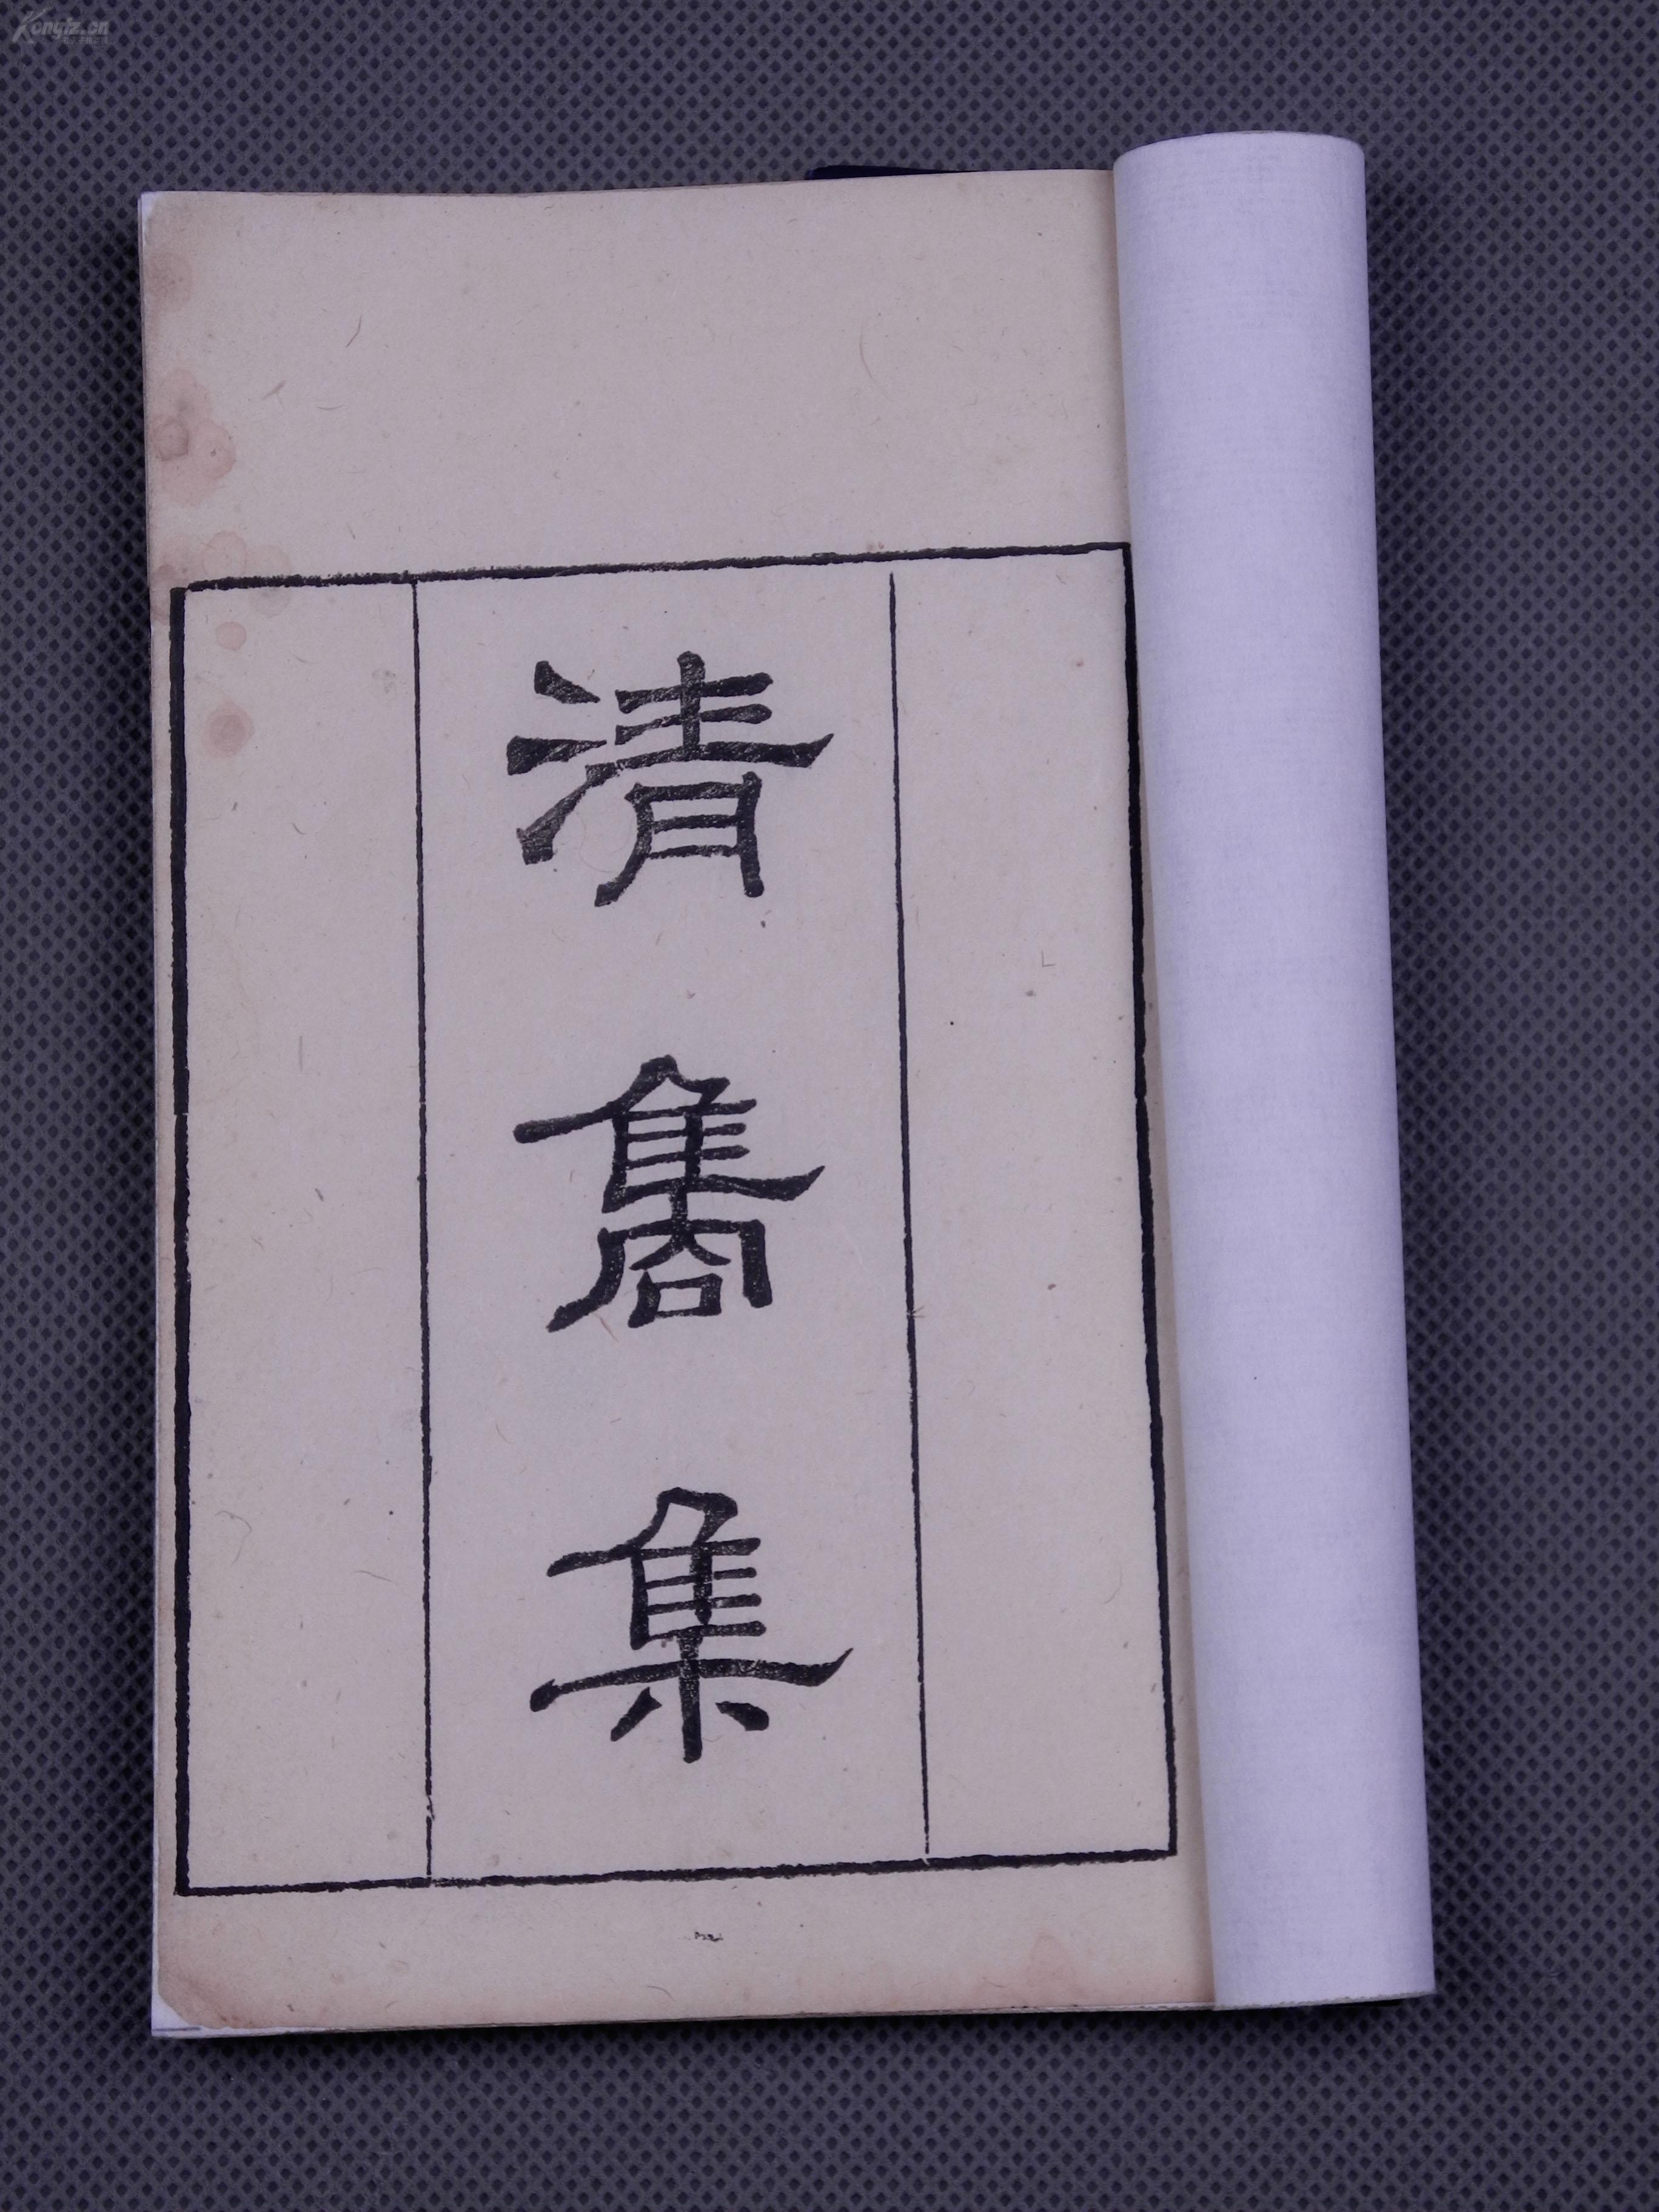 Kongfz.cn
清雋集